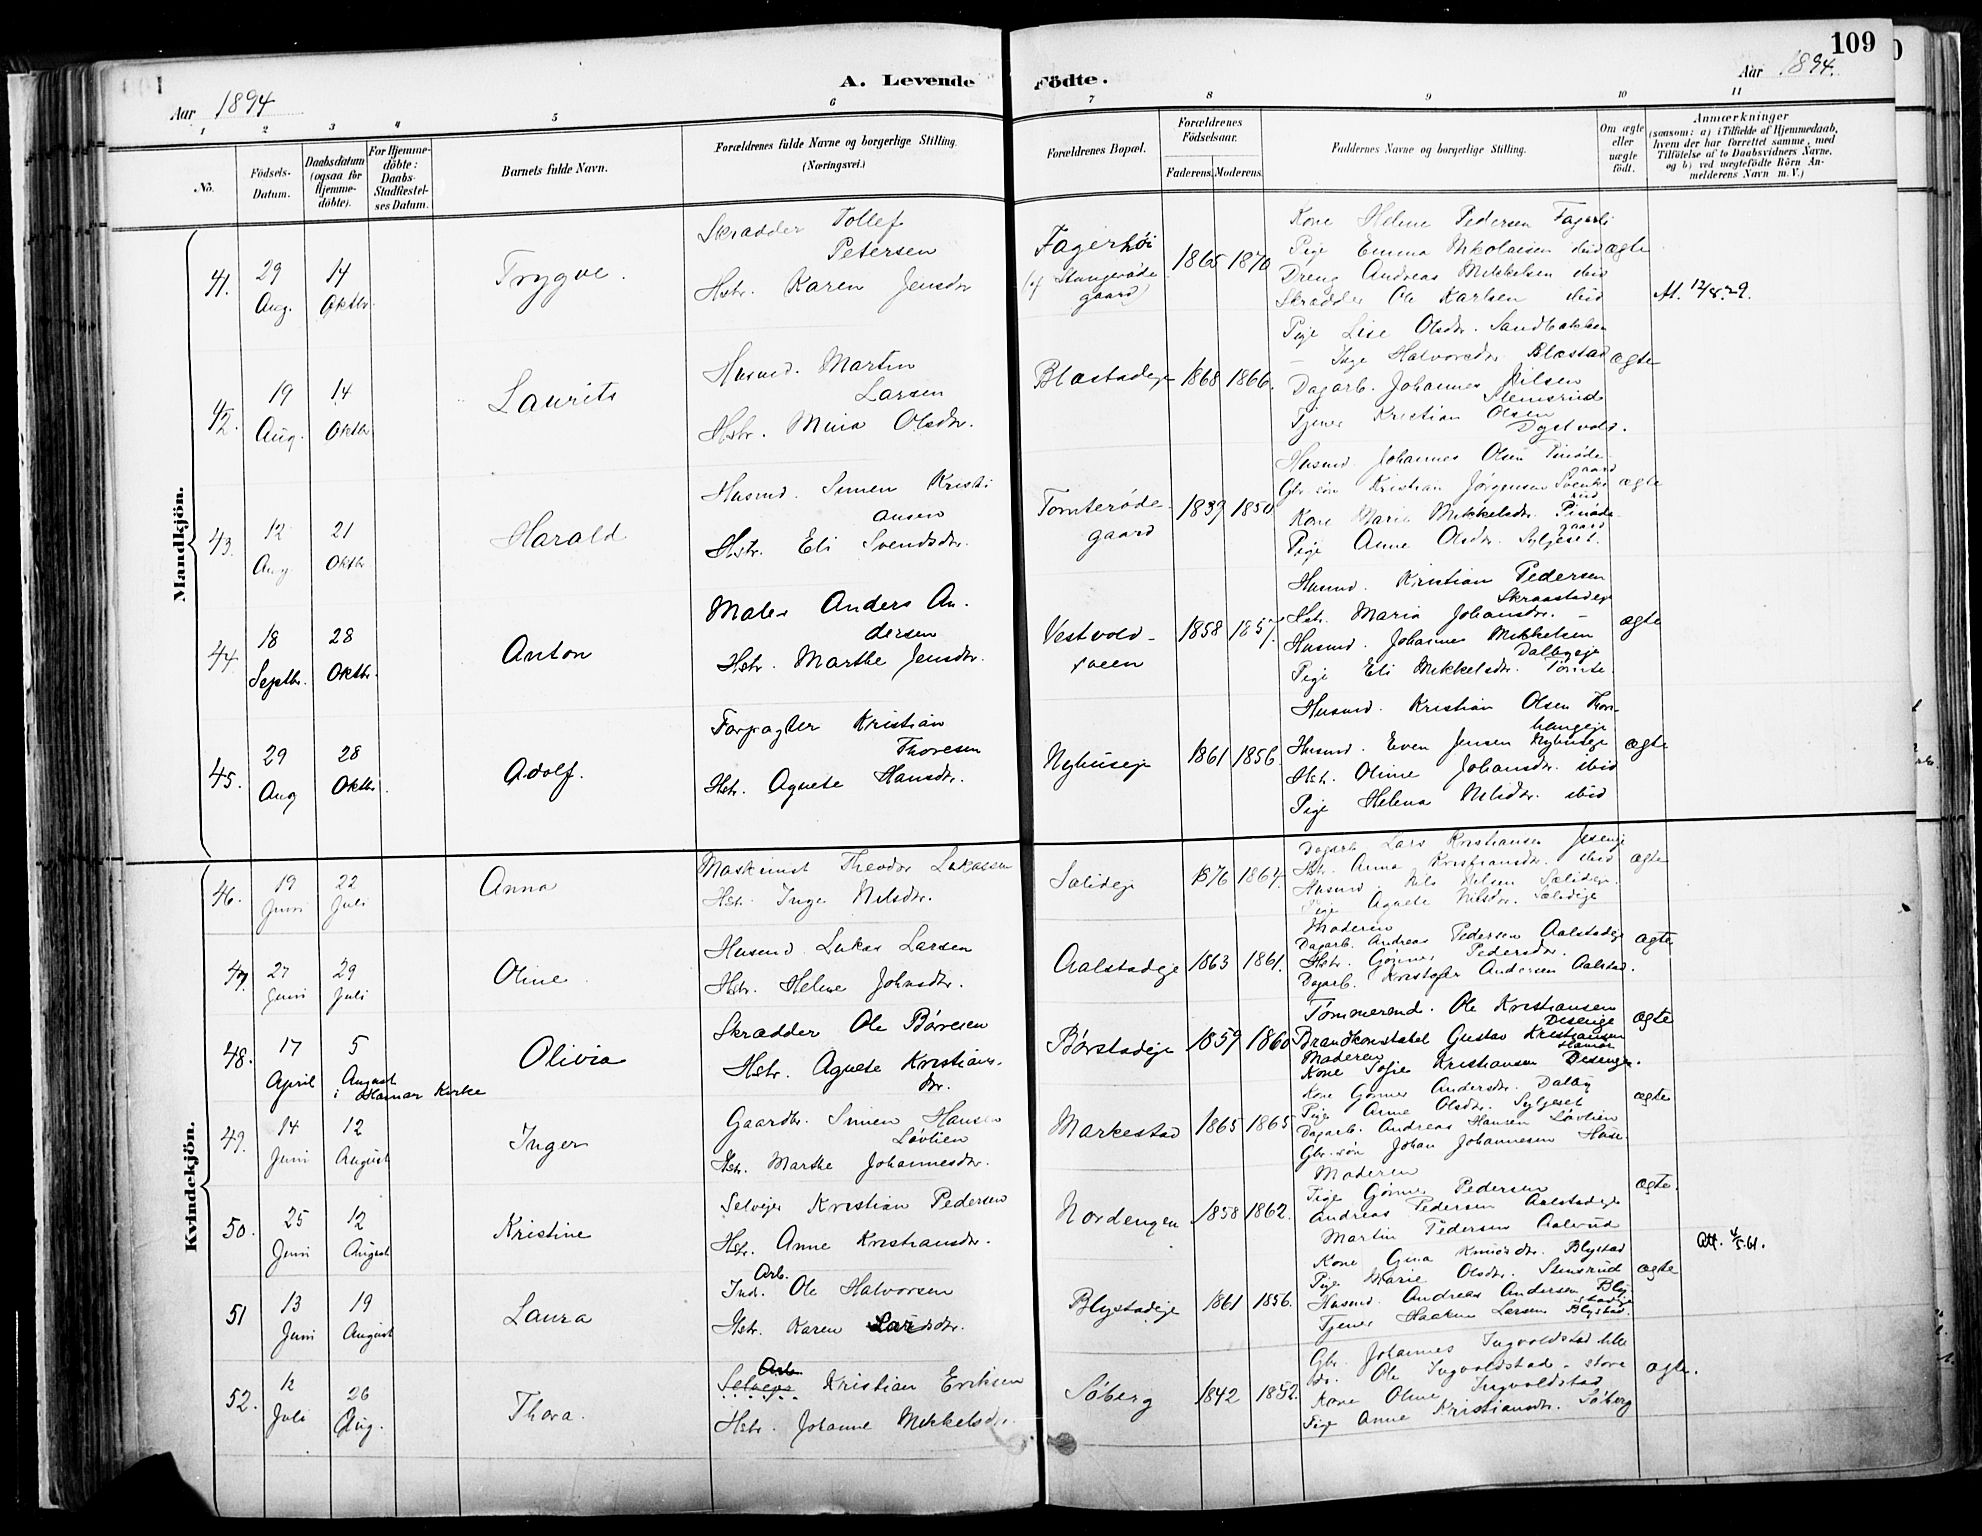 109
A. Levende Födte.
Aar 1894
Aar 1894.
1 2 3 4 5 6 7 8 9 10 11
No.
Födsels-Datum.
Daabsdatum (ogsaa for Hjemme-döbte).
For Hjemme-döbte: Daabs-Stadfæstel-ses Datum.
Barnets fulde Navn.
Forældrenes fulde Navne og borgerlige Stilling. (Næringsvei.)
Forældrenes Bopæl.
Forældrenes Födselsaar.
Faderens. Moderens.
Faddernes Navne og borgerlige Stilling.
Om ægte eller uægte født.
Anmærkninger
(saasom: a) i Tilfælde af Hjemmedaab, hvem der har forrettet samme, med Tilföielse af to Daabsvidners Navne, og b) ved uægtefödte Börn An-melderens Navn m. V.)
Mandkjön.
41. 29 Aug. 14 Oktbr. Trygve.
Skrædder Tollef
Petersen
Hstr. Karen Jensdr
Fagerhöi
(af Stangerøde
gaard)
1865 1870
Kone Helene Pedersen Fagerli
Pige Emma Nikolaisen ibid
Dreng Andreas Mikkelsen ibid
Skrædder Ole Karlsen ibid
ægte
At. 12/8.29.
42. 19 Aug. 14 Oktbr Laurits
Husmd. Martin
Larsen
Hstr. Mina Olsdr.
Blæstadeje 1868 1866.
Pige Lise Olsdr. Sandbakken
– Inge Halvorsdr. Blæstad
Dagarb. Johannes Nilsen
Stensrud
Tjener Kristian Olsen
Dystvold.
ægte
43. 12 Aug. 21 Oktbr Harald
Husmd. Simen Kristi
ansen
Hstr. Eli Svendsdr.
Tomterøde-
gaard
1839 1850
Husmd. Johannes Olsen Pinøde-
gaard
Gbr.søn Kristian Jørgensen Svends
rud
Kone Maria Mikkelsdr. Pinøde-
gaard
Pige Anne Olsdr. Syljeset.
ægte
44. 18 Septbr. 28 Oktbr. Anton
Maler Anders An-
dersen
Hstr. Marthe Jensdr.
Vestvold-
sveen
1858 1857.
Husmd. Kristian Pedersen
Skraastadeje
Hstr. Maria Johansdr. –
Husmd. Johannes Mikkelsen
Dalbyeje
Pige Eli Mikkelsdr. Tomte.
ægte
45. 29 Aug 28 Oktbr. Adolf.
Forpagter Kristian
Thoresen
Hstr. Agnete Hansdr.
Nyhuseje 1861 1856
Husmd. Kristian Olsen Thor-
haugeje
Husmd. Even Jensen Nyhuseje
Hstr. Oline Johansdr. ibid
Pige Helena Nilsdr. ibid
ægte
Kvindekjön.
46. 19 Juni 22 Juli Anna
Maskinist Theodor Lukassen
Hstr. Inge Nilsdr.
Sælideje 1876 1864.
Dagarb. Lars Kristiansen Jeseneje
Hstr. Anna Kristiansdr. ibid
Husmd. Nils Nilsen Sælideje.
Pige Agnete Nilsdr. Sælideje
ægte
47. 27 Juni 29 Juli Oline
Husmd. Lukas Larsen
Hstr. Helene Johnsdr.
Aalstadeje 1863 1861.
Moderen
Dagarb. Andreas Pedersen Aalstadeje
Hstr. Gønner Pedersdr.
Dagarb. Kristofer Andersen Aalstad.
ægte
48. 17 April 5 August i Hamar Kirke Olivia
Skrædder Ole Børresen
Hstr. Agnete Kristians-
dr.
Børstadeje 1859 1860
Tømmermd. Ole Kristiansen
Diseneje
Brandkonstabel Gustav Kristiansen
Hamar
Moderen
Kone Sofie Kristiansen Diseneje.
ægte
49. 14 Juni 12 August Inger
Gaardbr. Simen Hansen
Løvlien
Hstr. Marthe Johannesdr.
Markestad 1865 1865
Kone Gønner Andersdr. Dalby
Pige Anne Olsdr. Syljeset
Dagarb. Andreas Hansen Løvlien
Gbr.søn Johan Johannesen Huse.
ægte
50. 25 Juni 12 August Kristine
Selvejer Kristian Pedersen
Hstr. Anne Kristiansdr.
Nordengen 1858 1862.
Moderen
Pige Gønner Pedersen
Andreas Pedersen Aalstadeje
Martin Pedersen Aalerud
ægte.
Att. 4/5.61.
51 13 Juni 19 August Laura
Arb.
Ind. Ole Halvorsen
Hstr. Karen Larsdr.
Blystadeje 1861 1856.
Kone Gina Knudsdr. Blystad
Pige Marie Olsdr. Stensrud
Husmd. Andreas Andersen Bly-
stadeje
Tjener Haaken Larsen Blystad.
ægte
52. 12 Juli 26 Aug. Thora.
Arb.
Selvejer Kristian Eriksen
Hstr. Johanne Mikkelsdr.
Søberg 1842 1852.
Gbr. Johannes Ingvoldstad lille
do. Ole Ingvoldstad – store
Kone Oline Ingvoldstad
Pige Anne Kristiansdr. Søberg
ægte.